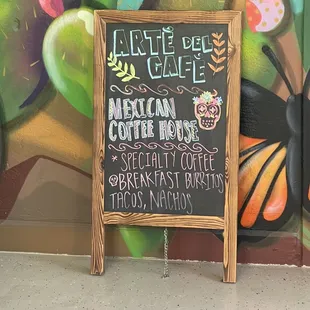 ARTĒ DEL
CAFÉ
MEXICAN
COFFEE HOUSE
* SPECIALTY COFFEE
BREAKFAST BURRITOS
TACOS, NACHOS